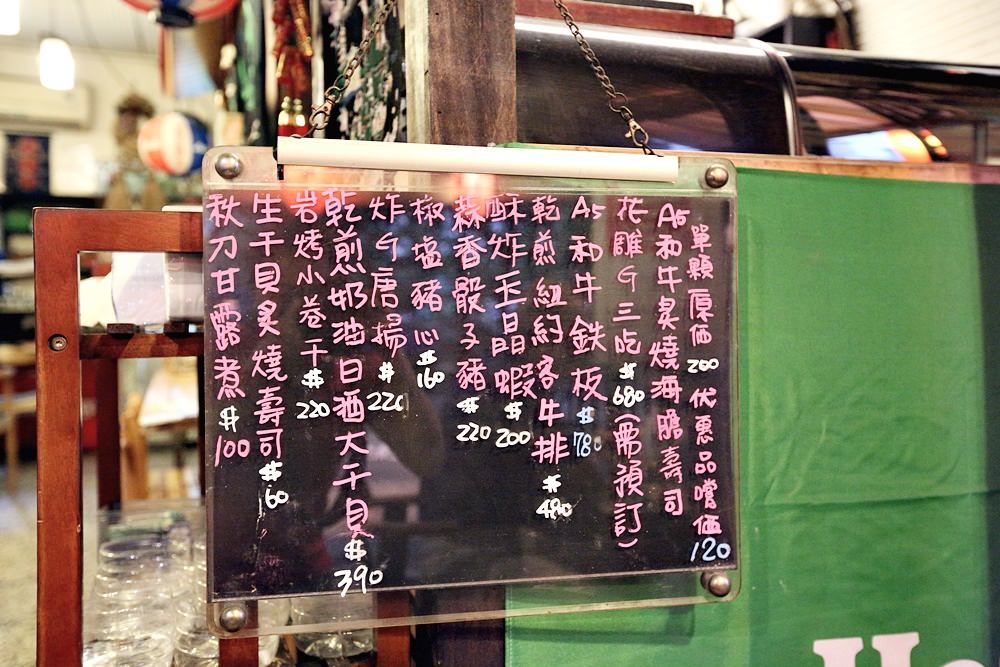 單顆原価 200 优惠品嚐価 120
A5和牛炙燒海膽壽司
花雕G三吃 $680 (需預訂)
A5和牛鉄板 $780
乾煎紐約客牛排 $480
酥炸玉晶蝦 $200
蒜香骰子豬 $220
椒塩豬心 $160
炸G唐揚 $220
乾煎奶油白酒大干貝 $390
岩烤小卷干 $220
生干貝炙燒壽司 $60
秋刀甘露煮 $100